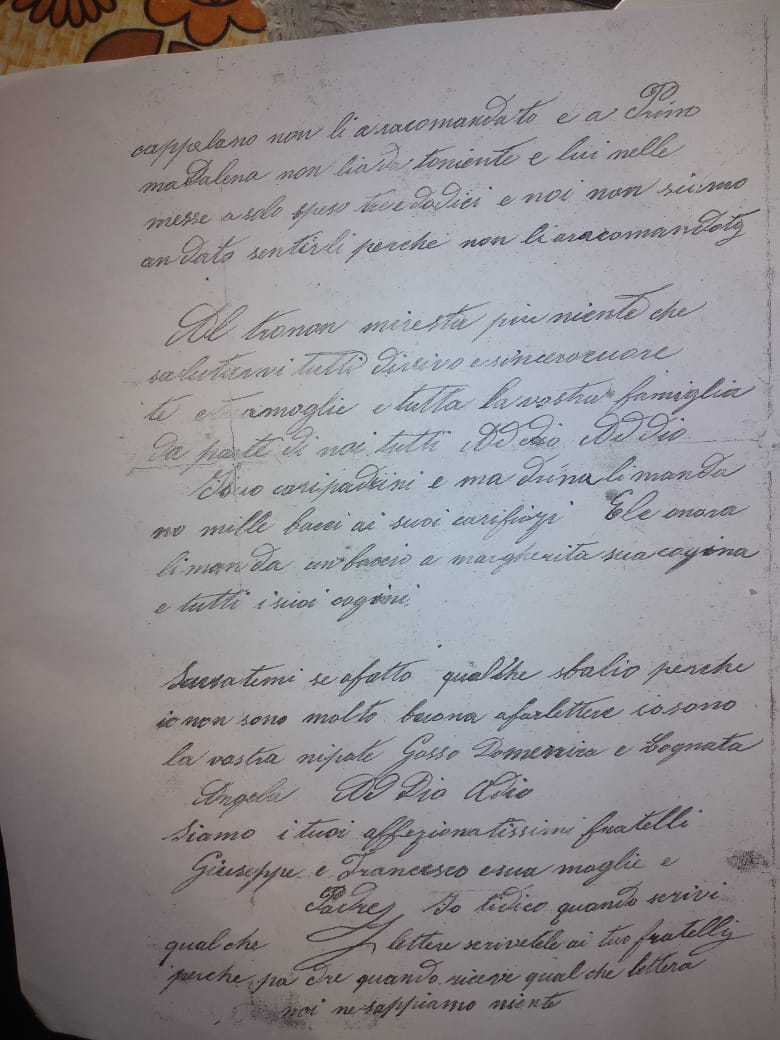 cappelano non li aracomandato e a Primo
maDalena non lia da toniente e lui nelle
messe a solo speso tre e dodici e noi non siamo
andato sentirli perche non li aracomandato
Al tro non mi resta piu niente che
salutarvi tutti di vivo e sincero cuore
te e tua moglie e tutta la vostra famiglia
da parte di noi tutti AD dio AD dio
Io cari padrini e ma drina li manda
no mille bacci ai suoi cari fiozi Ele onora
li man da un baccio a margherita sua cogina
e tutti i suoi cogini
Scusatemi se o fatto qualche sbalio perche
io non sono molto buona a far lettere io sono
la vostra nipote Gosso Domenica e Cognata
Angela AD Dio Adio
Siamo i tuoi affezionatissimi fratelli
Giuseppe e Francesco e sua moglie e
Padre Io ti dico quando scrivi
qual che lettere scrivetele ai tuo fratelli
perche pa dre quando riceve qual che lettera
noi ne sappiamo niente